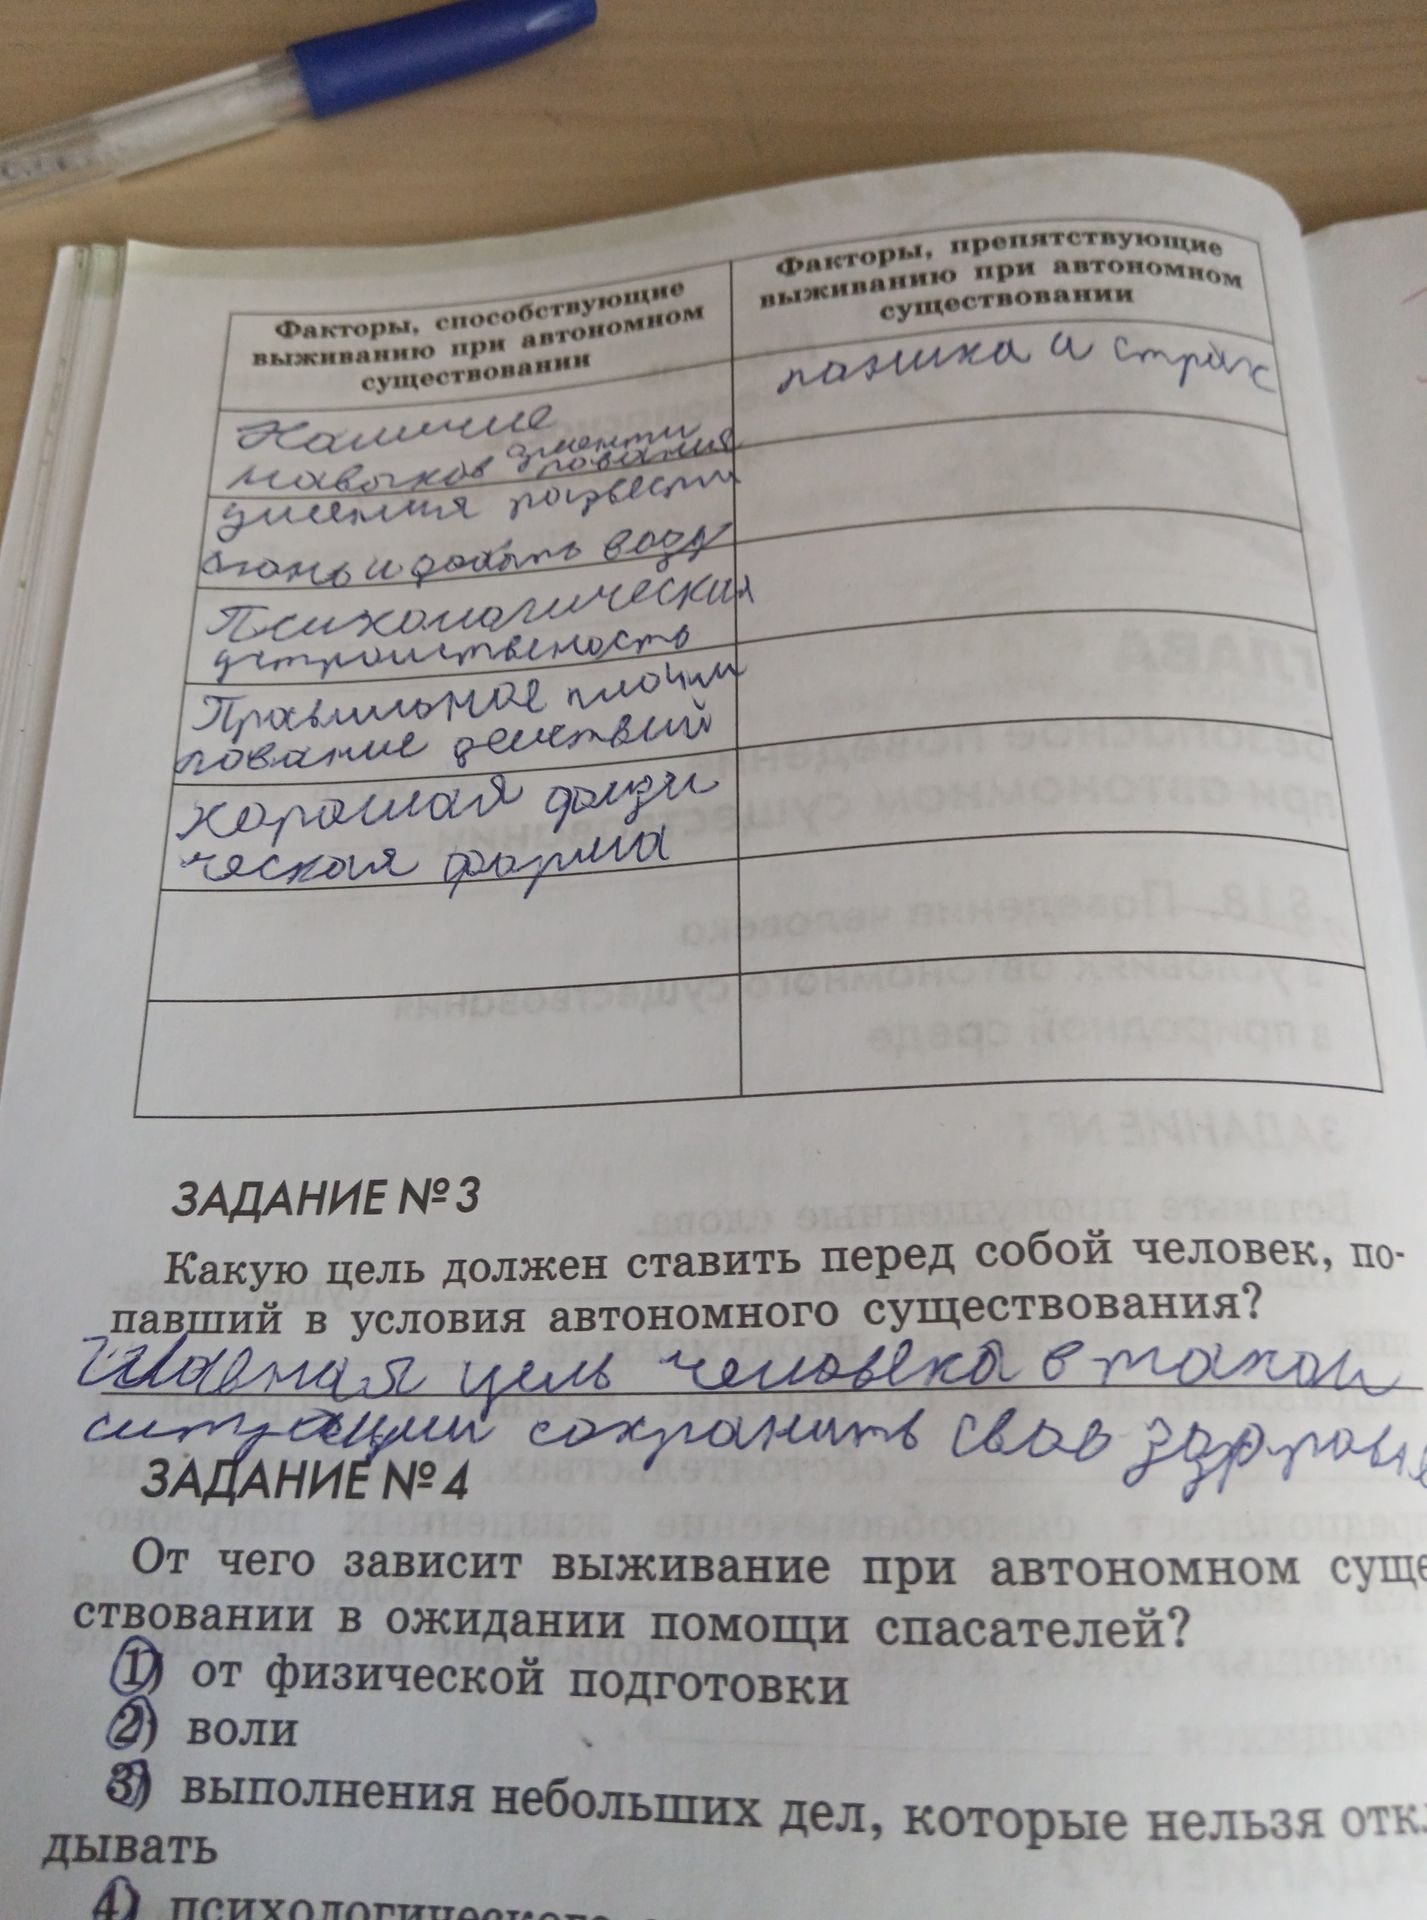 Факторы, способствующие
выживанию при автономном
существовании
Факторы, препятствующие
выживанию при автономном
существовании
Наличие
навыков ориенти
рования
паника и страх
умения развести
огонь и добыть воду
Психологическая
Правильное плани
рование действий
Хорошая физи
ческая форма
ЗАДАНИЕ №3
Какую цель должен ставить перед собой человек, по-
павший в условия автономного существования?
Главная цель человека в такой
ситуации сохранить своё здоровье
ЗАДАНИЕ №4
От чего зависит выживание при автономном суще
ствовании в ожидании помощи спасателей?
1) от физической подготовки
2) воли
3) выполнения небольших дел, которые нельзя откл
дывать
4) психологического